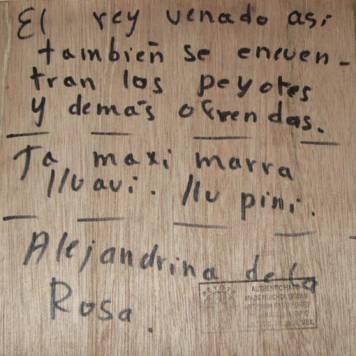 El rey venado así
también se encuen-
tran los peyotes
y demás ofrendas.
Ta maxi marra
lluaui. llu pini.
Alejandrina de la
Rosa.